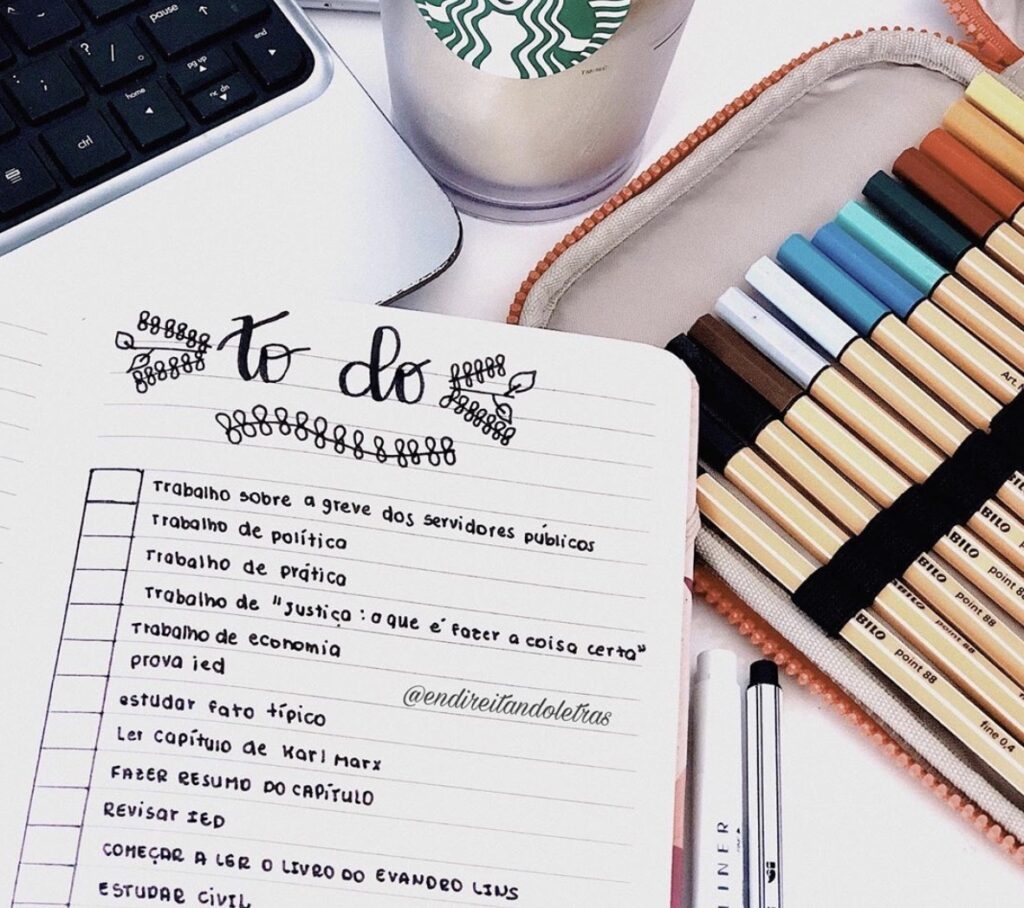 pause
?
/
;
end
pg up
home
ctrl
to do
Trabalho sobre a greve dos servidores públicos
Trabalho de política
Trabalho de prática
Trabalho de "Justiça: o que é fazer a coisa certa"
Trabalho de economia
prova ied
estudar fato típico
Ler capítulo de Karl Marx
FAZER RESUMO DO CAPÍTULO
Revisar IED
COMEÇAR A LER O LIVRO DO EVANDRO LINS
ESTUDAR CIVIL
@endireitandoletras
Art.
BILO
BILO point 8
BILO point 88
BILO point 88
BILO point 88 fine 0,4
LINER